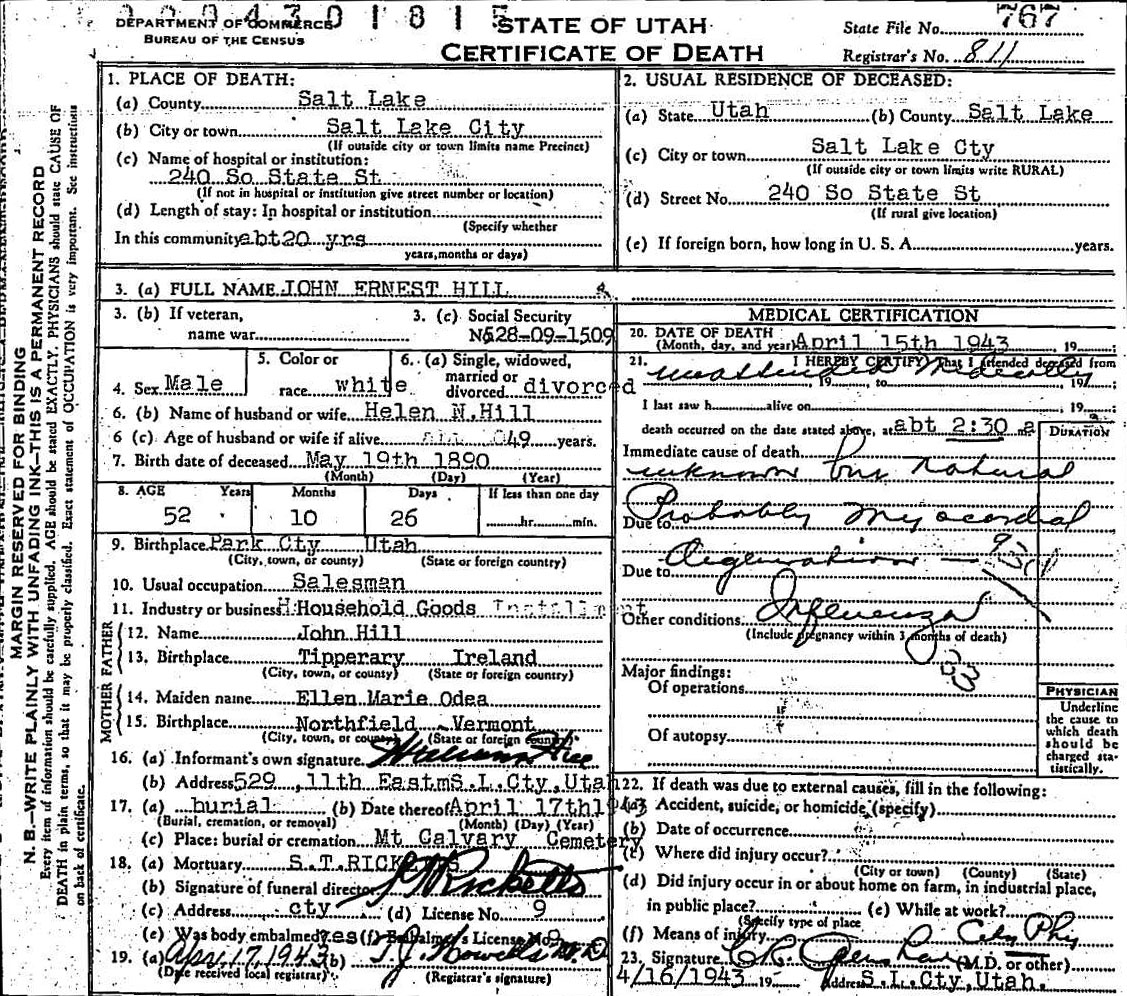 0 0 4 3 0 1 8 1 5
DEPARTMENT OF COMMERCE
BUREAU OF THE CENSUS
STATE OF UTAH
CERTIFICATE OF DEATH
State File No. 767
Registrar's No. 811
MARGIN RESERVED FOR BINDING
N. B.—WRITE PLAINLY WITH UNFADING INK—THIS IS A PERMANENT RECORD
Every item of information should be carefully supplied. AGE should be stated EXACTLY. PHYSICIANS should state CAUSE OF
DEATH in plain terms, so that it may be properly classified. Exact statement of OCCUPATION is very important. See instructions
on back of certificate.
1. PLACE OF DEATH:
(a) County Salt Lake
(b) City or town Salt Lake City
(If outside city or town limits name Precinct)
(c) Name of hospital or institution:
240 So State St
(If not in hospital or institution give street number or location)
(d) Length of stay: In hospital or institution
(Specify whether
In this community abt20 yrs
years, months or days)
2. USUAL RESIDENCE OF DECEASED:
(a) State Utah (b) County Salt Lake
(c) City or town Salt Lake Cty
(If outside city or town limits write RURAL)
(d) Street No. 240 So State St
(If rural give location)
(e) If foreign born, how long in U. S. A. years.
3. (a) FULL NAME JOHN ERNEST HILL
3. (b) If veteran,
name war
3. (c) Social Security
No 528-09-1509
4. Sex Male
5. Color or
race white
6. (a) Single, widowed,
married or
divorced divorced
6. (b) Name of husband or wife Helen N.Hill
6 (c) Age of husband or wife if alive 49 years.
7. Birth date of deceased May 19th 1890
(Month) (Day) (Year)
8. AGE Years Months Days If less than one day
52 10 26 hr. min.
9. Birthplace Park Cty Utah
(City, town, or county) (State or foreign country)
10. Usual occupation Salesman
11. Industry or business Household Goods Installment
FATHER
12. Name John Hill
13. Birthplace Tipperary Ireland
(City, town, or county) (State or foreign country)
MOTHER
14. Maiden name Ellen Marie Odea
15. Birthplace Northfield Vermont
(City, town, or county) (State or foreign country)
16. (a) Informant's own signature William Hill
(b) Address 529 ,11th EastmS.L.Cty,Utah
17. (a) burial (b) Date thereof April 17th1943
(Burial, cremation, or removal) (Month) (Day) (Year)
(c) Place: burial or cremation Mt Calvary Cemetery
18. (a) Mortuary S.T.RICKETTS
(b) Signature of funeral director Ricketts
(c) Address cty (d) License No. 9
(e) Was body embalmed yes (f) Embalmer's License No 9
19. (a) Apr. 17, 1943 (b) T.J. Howells M.D
(Date received local registrar) (Registrar's signature)
MEDICAL CERTIFICATION
20. DATE OF DEATH
(Month, day, and year) April 15th 1943 19
21. I HEREBY CERTIFY That I attended deceased from
unattended medically 19 to 19
I last saw h alive on , 19
death occurred on the date stated above, at abt 2:30 a m.
DURATION
Immediate cause of death
unknown but natural
Due to Probably myocardial
Due to degeneration — 93d
Other conditions Influenza
(Include pregnancy within 3 months of death)
33
Major findings:
Of operations
Of autopsy
PHYSICIAN
Underline
the cause to
which death
should be
charged sta-
tistically.
22. If death was due to external causes, fill in the following:
(a) Accident, suicide, or homicide (specify)
(b) Date of occurrence
(c) Where did injury occur?
(City or town) (County) (State)
(d) Did injury occur in or about home on farm, in industrial place,
in public place? (e) While at work?
(Specify type of place
(f) Means of injury City Phy
23. Signature (M.D. or other)
4/16/1943 19 Address S.L.Cty,Utah.